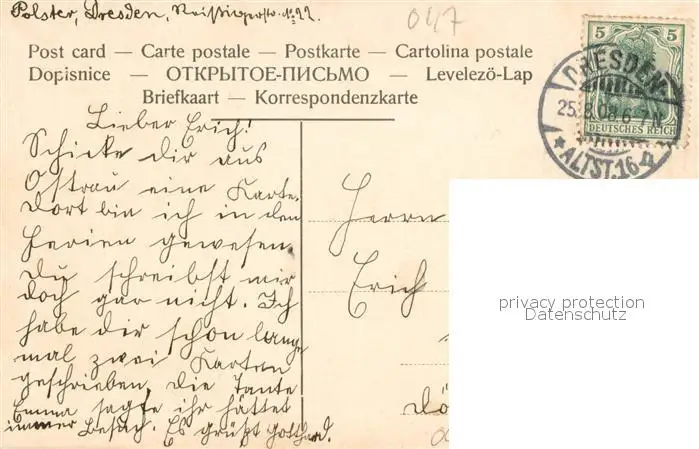 Polster, Dresden, Reissigerstr. No 22.
047
Post card — Carte postale — Postkarte — Cartolina postale
Dopisnice — ОТКРЫТОЕ-ПИСЬМО — Levelezö-Lap
Briefkaart — Korrespondenzkarte
5 5
DEUTSCHES REICH
DRESDEN
25.8.08.6-7N
*ALTST.16
Lieber Erich!
Schicke dir aus
Ostrau eine Karte.
Dort bin ich in den
Ferien gewesen.
Du schreibst mir
doch gar nicht. Ich
habe dir schon lange
mal zwei Karten
geschrieben. Die Tante
Emma sagte ihr hättet
immer Besuch. Es grüßt Gotthard.
Herrn
Erich
Dö
privacy protection
Datenschutz